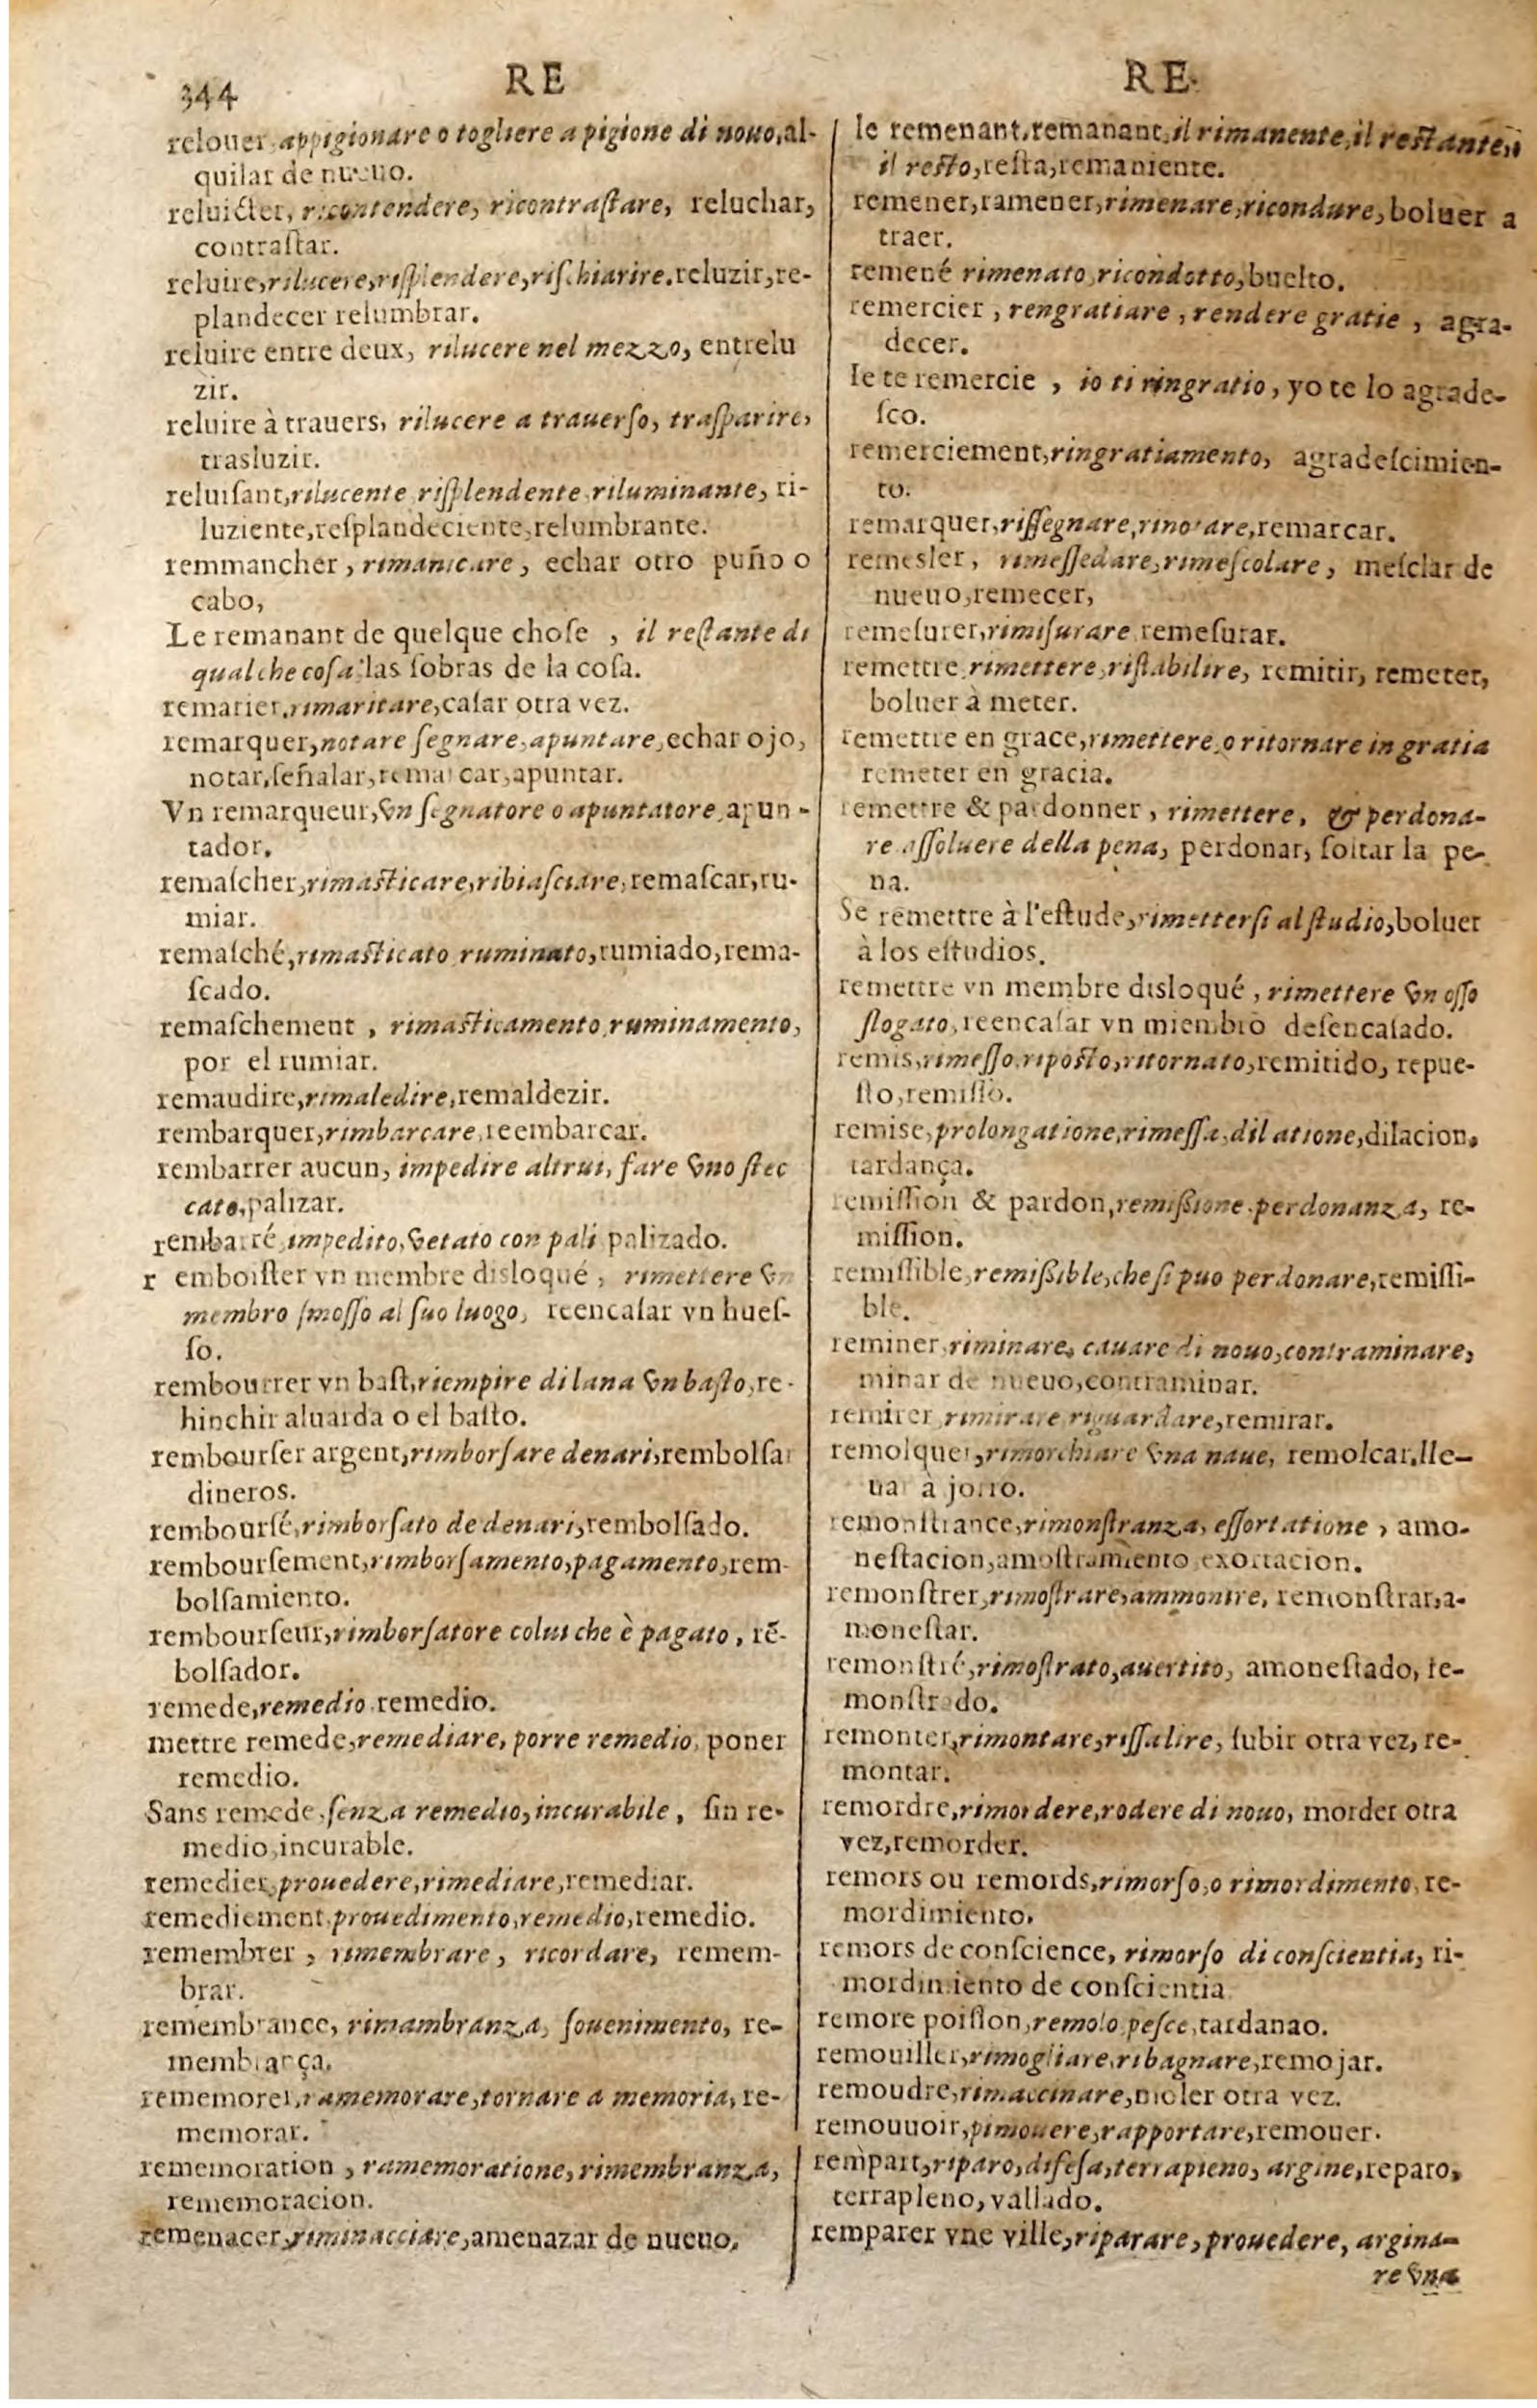 344
RE
relouer, appigionare o togliere a pigione di nouo, al-
quilar de nueuo.
reluicter, ricontendere, ricontraſtare, reluchar,
contraſtar.
reluire, rilucere, riſplendere, riſchiarire. reluzir, re-
plandecer relumbrar.
reluire entre deux, rilucere nel mezzo, entrelu
zir.
reluire à trauers, rilucere a trauerſo, traſparire,
trasluzir.
reluiſant, rilucente riſplendente riluminante, ri-
luziente, reſplandeciente, relumbrante.
remmancher, rimanicare, echar otro puño o
cabo,
Le remanant de quelque choſe, il reſtante di
qualche coſa las ſobras de la coſa.
remarier, rimaritare, caſar otra vez.
remarquer, notare ſegnare, apuntare, echar ojo,
notar, ſeñalar, remarcar, apuntar.
Vn remarqueur, vn ſegnatore o apuntatore, apun-
tador.
remaſcher, rimaſticare, ribiaſciare, remaſcar, ru-
miar.
remaſché, rimaſticato ruminato, rumiado, rema-
ſcado.
remaſchement, rimaſticamento, ruminamento,
por el rumiar.
remaudire, rimaledire, remaldezir.
rembarquer, rimbarcare, reembarcar.
rembarrer aucun, impedire altrui, fare vno ſtec
cato, palizar.
rembarré, impedito, vetato con pali palizado.
r emboiſter vn membre disloqué, rimettere vn
membro ſmoſſo al ſuo luogo, reencaſar vn hueſ-
ſo.
rembourrer vn baſt, riempire di lana vn baſto, re-
hinchir aluarda o el baſto.
rembourſer argent, rimborſare denari, rembolſar
dineros.
rembourſé, rimborſato de denari, rembolſado.
rembourſement, rimborſamento, pagamento, rem-
bolſamiento.
rembourſeur, rimborſatore colui che è pagato, rē-
bolſador.
remede, remedio remedio.
mettre remede, remediare, porre remedio, poner
remedio.
Sans remede, ſenza remedio, incurabile, ſin re-
medio, incurable.
remedier, prouedere, rimediare, remediar.
remediement, prouedimento, remedio, remedio.
remembrer, rimembrare, ricordare, remem-
brar.
remembrance, rimambranza, ſouenimento, re-
membrança.
rememorer, ramemorare, tornare a memoria, re-
memorar.
rememoration, ramemoratione, rimembranza,
rememoracion.
remenacer, riminacciare, amenazar de nueuo.
RE
le remenant, remanant, il rimanente, il reſtante,
il reſto, reſta, remaniente.
remener, ramener, rimenare, ricondure, boluer a
traer.
remené rimenato, ricondotto, buelto.
remercier, rengratiare, rendere gratie, agra-
decer.
Ie te remercie, io ti ringratio, yo te lo agrade-
ſco.
remerciement, ringratiamento, agradeſcimien-
to.
remarquer, riſſegnare, rinotare, remarcar.
remesler, rimeſſedare, rimeſcolare, meſclar de
nueuo, remecer,
remeſurer, rimiſurare remeſurar.
remettre, rimettere, riſtabilire, remitir, remeter,
boluer à meter.
remettre en grace, rimettere, o ritornare in gratia
remeter en gracia.
remettre & pardonner, rimettere, & perdona-
re aſſoluere della pena, perdonar, ſoltar la pe-
na.
Se remettre à l'eſtude, rimetterſi al ſtudio, boluer
à los eſtudios.
remettre vn membre disloqué, rimettere vn oſſo
ſlogato, reencaſar vn miembro deſencaſado.
remis, rimeſſo, ripoſto, ritornato, remitido, repue-
ſto, remiſſo.
remise, prolongatione, rimeſſa, dilatione, dilacion,
tardança.
remiſſion & pardon, remiſſione, perdonanza, re-
miſſion.
remiſſible, remiſſible, che ſi puo perdonare, remiſſi-
ble.
reminer, riminare, cauare di nouo, contraminare,
minar de nueuo, contraminar.
remirer, rimirare riguardare, remirar.
remolquer, rimorchiare vna naue, remolcar, lle-
uar à jorro.
remonſtrance, rimonſtranza, eſſortatione, amo-
neſtacion, amoſtramiento exortacion.
remonſtrer, rimoſtrare, ammonire, remonſtrar, a-
moneſtar.
remonſtré, rimoſtrato, auertito, amoneſtado, re-
monſtrado.
remonter, rimontare, riſſalire, ſubir otra vez, re-
montar.
remordre, rimordere, rodere di nouo, morder otra
vez, remorder.
remors ou remords, rimorſo, o rimordimento, re-
mordimiento.
remors de conſcience, rimorſo di conſcientia, ri-
mordimiento de conſcientia
remore poiſſon, remolo peſce, tardanao.
remouiller, rimogliare, ribagnare, remojar.
remoudre, rimaccinare, moler otra vez.
remouuoir, pimouere, rapportare, remouer.
rempart, riparo, difeſa, terrapieno, argine, reparo,
terrapleno, vallado.
remparer vne ville, riparare, prouedere, argina-
re vna